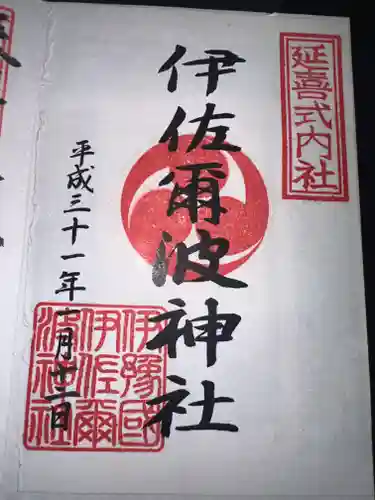 延喜式内社
伊佐爾波神社
伊豫國
伊佐爾
波神社
平成三十一年一月十二日